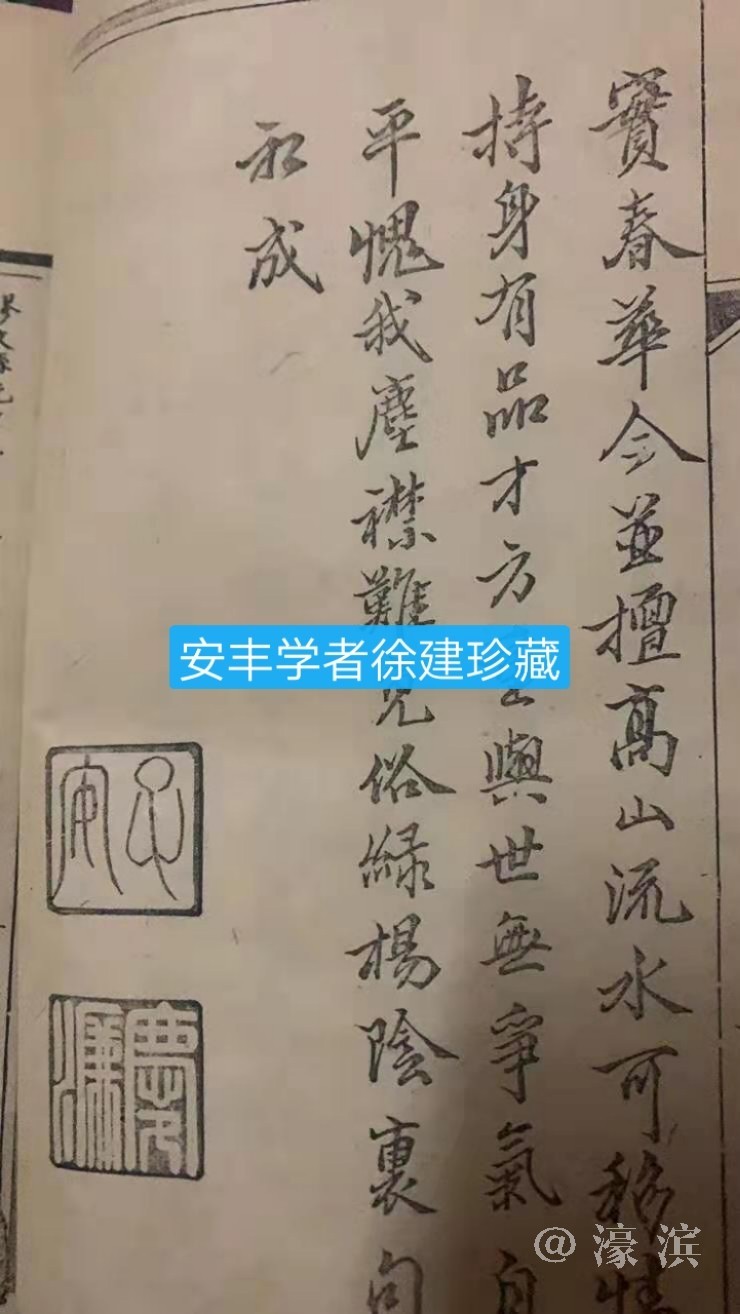 實春華今並擅高山流水可移情
持身有品才方 與世無爭氣自
平愧我塵襟難免俗綠楊陰裏句
初成
安丰学者徐建珍藏
心安
慶濂
@濠滨